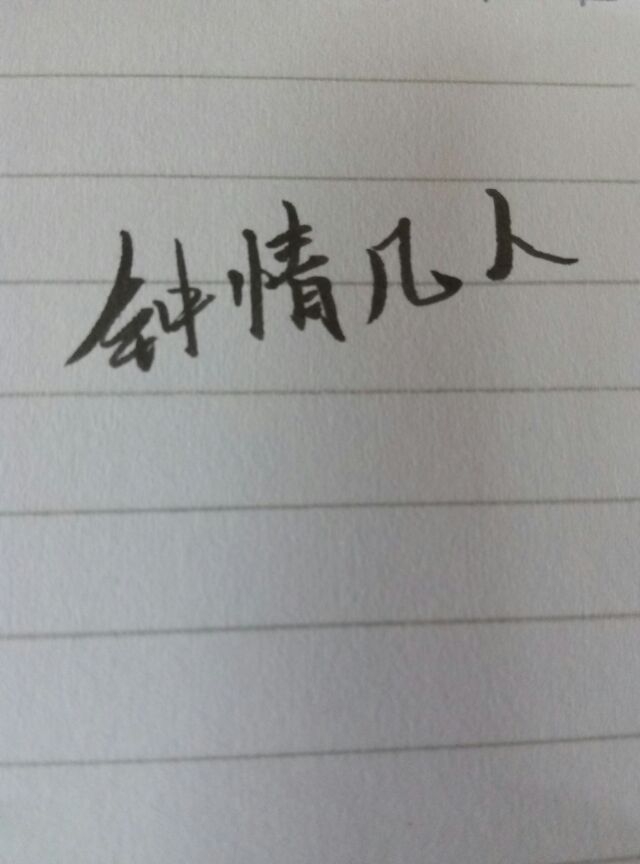 钟情几人